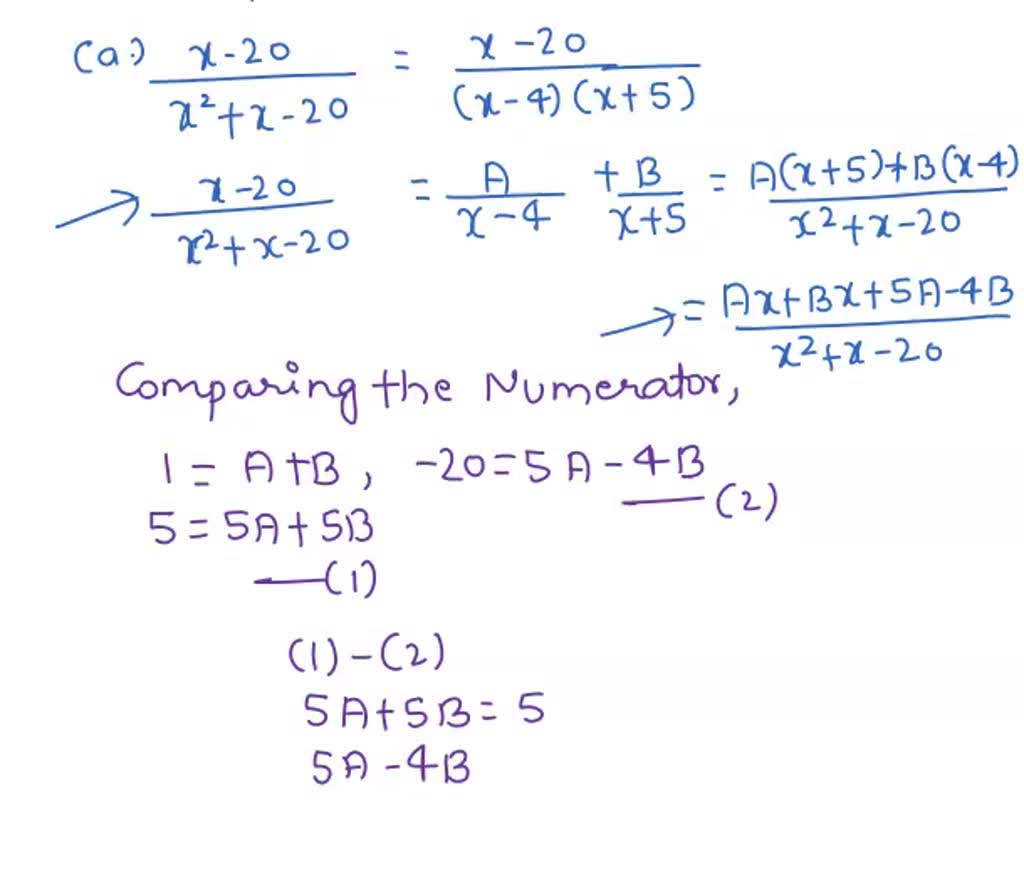 (a.) x-20 / x²+x-20 = x-20 / (x-4)(x+5)
→ x-20 / x²+x-20 = A / x-4 + B / x+5 = A(x+5)+B(x-4) / x²+x-20
→ = Ax+Bx+5A-4B / x²+x-20
Comparing the Numerator,
1 = A+B, -20=5A-4B
—(2)
5=5A+5B
—(1)
(1)-(2)
5A+5B=5
5A-4B